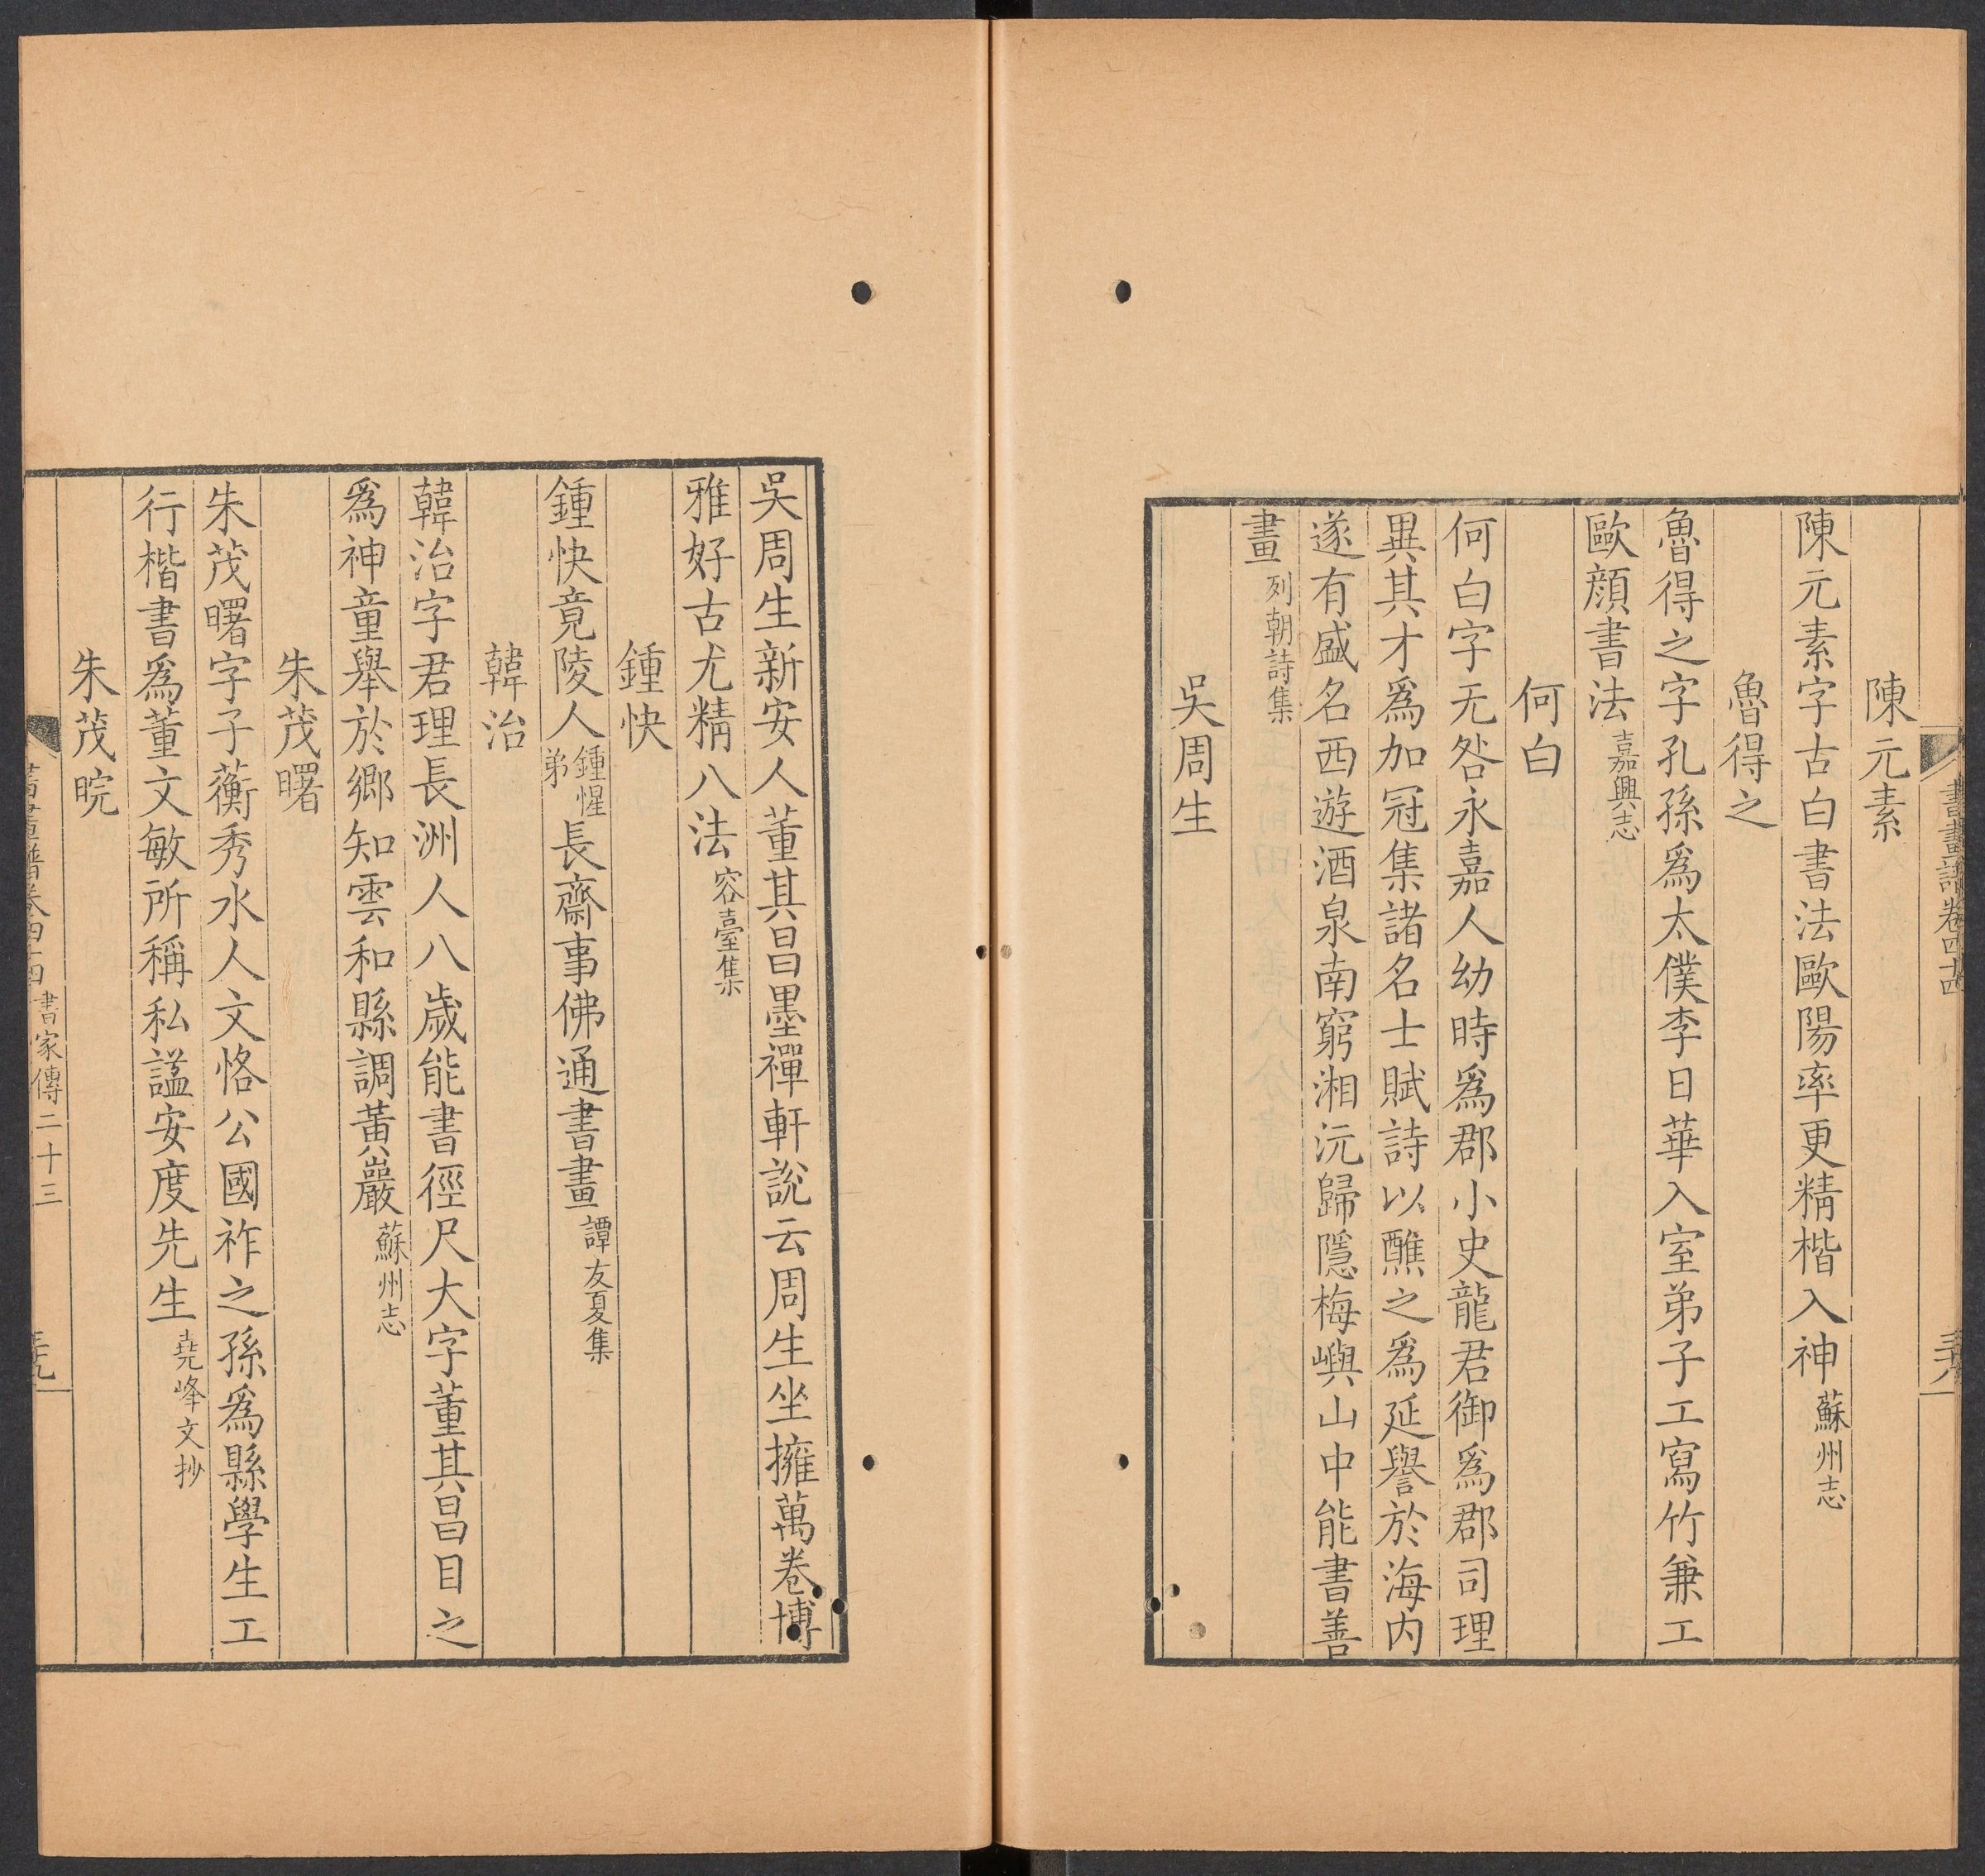 書畫譜卷四十四
陳元素
陳元素字古白書法歐陽率更精楷入神蘇州志
魯得之
魯得之字孔孫爲太僕李日華入室弟子工寫竹兼工
歐顏書法嘉興志
何白
何白字无咎永嘉人幼時爲郡小史龍君御爲郡司理
異其才爲加冠集諸名士賦詩以醮之爲延譽於海內
遂有盛名西遊酒泉南窮湘沅歸隱梅嶼山中能書善
畫列朝詩集
吳周生
吳周生新安人董其昌墨禪軒說云周生坐擁萬卷博
雅好古尤精八法容臺集
鍾快
鍾快竟陵人鍾惺弟長齋事佛通書畫譚友夏集
韓治
韓治字君理長洲人八歲能書徑尺大字董其昌目之
爲神童舉於鄉知雲和縣調黃巖蘇州志
朱茂曙
朱茂曙字子蘅秀水人文恪公國祚之孫爲縣學生工
行楷書爲董文敏所稱私諡安度先生堯峰文抄
朱茂晥
書畫譜卷四十四 書家傳二十三